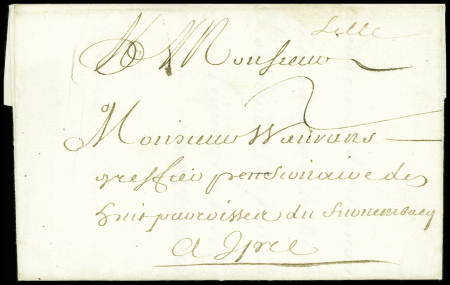 Lille
A Monsieur
Monsieur Wauvans
greffier pensionaire des
huit paroisses du
a Ypre